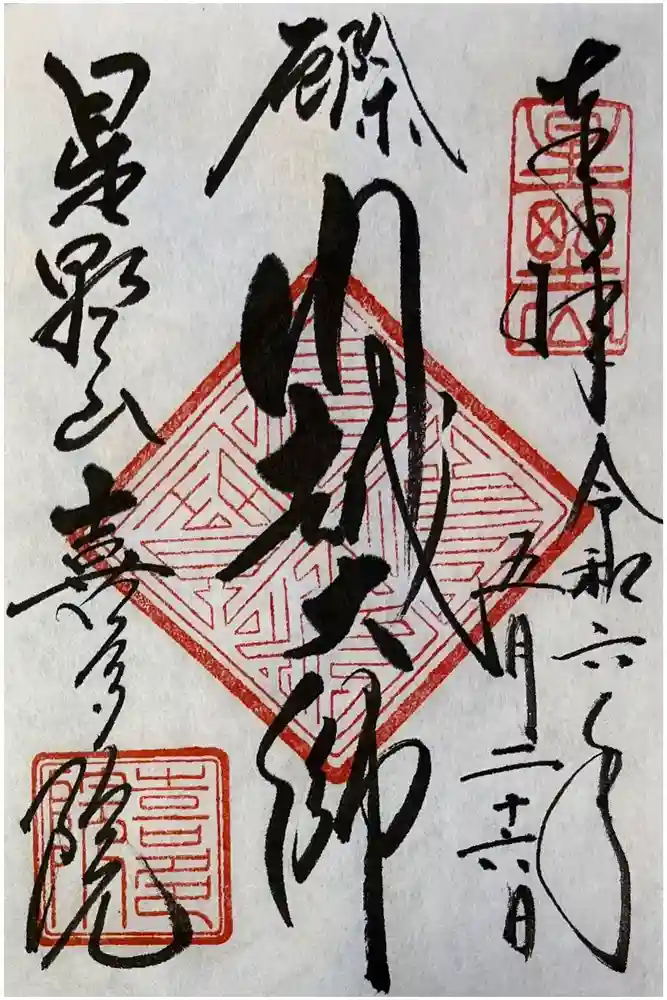 奉拝 令和六年
五月二十六日
厄除
川越大師
星野山 喜多院